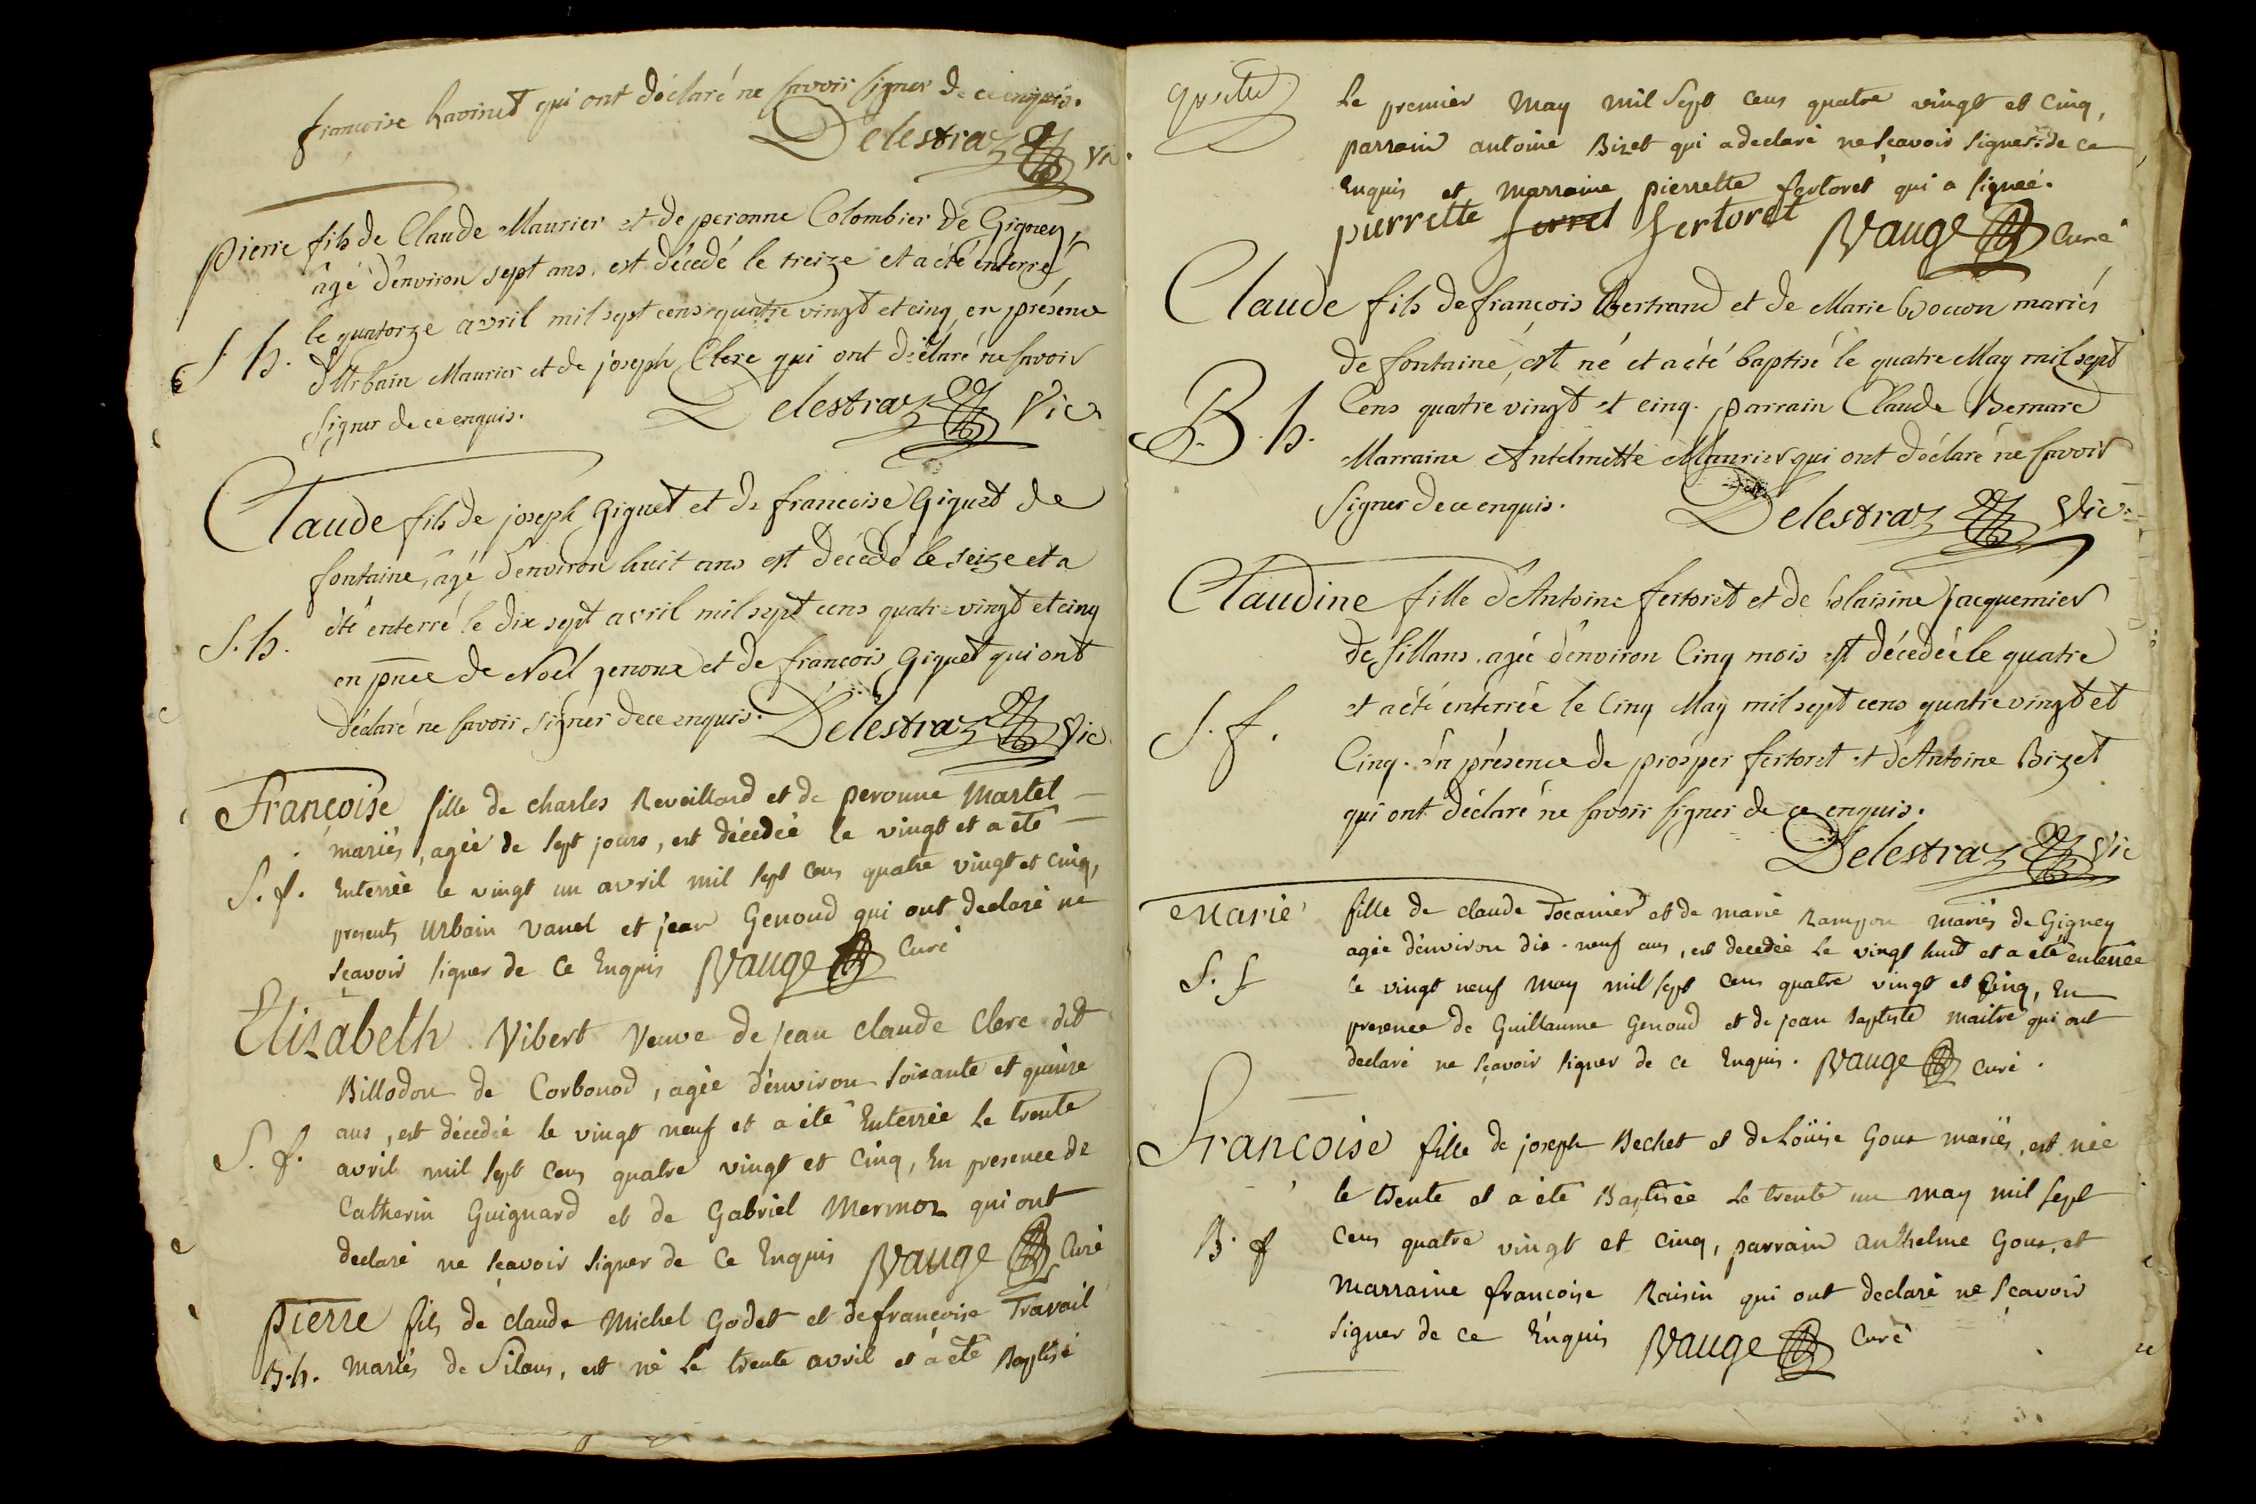 françoise Ravinet qui ont déclaré ne savoir signer de ce enquis.
Delestraz Vic.
Pierre fils de Claude Maurier et de peronne Colombier de Gigney,
âgé d'environ sept ans, est décédé le treize et a été enterré
le quatorze avril mil sept cens quatre vingt et cinq, en présence
S. h.
d'Urbain Maurier et de joseph Clerc qui ont déclaré ne savoir
signer de ce enquis. Delestraz Vic.
Claude fils de joseph Giguet et de françoise Giguet de
fontaine, âgé d'environ huit ans est décédé le seize et a
été enterré le dix sept avril mil sept cens quatre vingt et cinq
S. h.
en pnce de Noël genoux et de françois Giguet qui ont
déclaré ne savoir signer de ce enquis. Delestraz Vic.
Françoise fille de charles Reveillard et de peronne Martel
mariés, agée de sept jours, est décedée le vingt et a eté
S. f. Enterrée le vingt un avril mil sept cens quatre vingt et cinq,
presents Urbain Vanel et jean Genoud qui ont declaré ne
sçavoir signer de ce Enquis Vauge Curé
Elizabeth Vibert Veuve de jean claude Clerc dit
Billodon de Corbonod, agée d'environ soixante et quinze
ans, est décedée le vingt neuf et a été Enterrée Le trente
S. f. avril mil sept cens quatre vingt et cinq, En presence de
Catherin Guignard et de Gabriel Mermoz qui ont
declaré ne sçavoir signer de ce Enquis Vauge Curé
Pierre fils de claude Michel Godet et de françoise Travail
B. h. mariés de Silans, est né Le trente avril et a eté Baptisé
Le premier May mil sept cens quatre vingt et cinq,
parrain antoine Bizet qui a declaré ne sçavoir signer de ce
Enquis et marraine pierrette fertoret qui a signeé.
pierrette ferret fertoret Vauge Curé
Claude fils de françois Bertrand et de Marie Bocon mariés
de fontaine, est né et a été baptisé le quatre May mil sept
B. h. Cens quatre vingt et cinq. parrain Claude Bernard
Marraine Antelmette Maurier qui ont déclaré ne savoir
signer de ce enquis. Delestraz Vic.
Claudine fille d'Antoine fertoret et de Blaisine jacquemier
de sillans, agée d'environ Cinq mois est décedée le quatre
S. f. et a été enterrée le Cinq May mil sept cens quatre vingt et
Cinq. En présence de prosper fertoret et d'Antoine Bizet
qui ont déclaré ne savoir signer de ce enquis.
Delestraz Vic
Marie fille de claude Tocanier et de marie Ramyon mariés de Gigney
agée d'environ dix-neuf ans, est decedée Le vingt huit et a eté enterrée
S. f le vingt neuf May mil sept cens quatre vingt et Cinq, En
presence de Guillaume Genoud et de jean Baptiste Maitre qui ont
declaré ne sçavoir signer de ce Enquis. Vauge Curé.
Françoise fille de joseph Bechet et de Loüise Goux mariés, est née
le trente et a été Baptisée Le trente un may mil sept
B. f cens quatre vingt et cinq, parrain anthelme Goux, et
Marraine françoise Raisin qui ont declaré ne sçavoir
signer de ce Enquis Vauge Curé